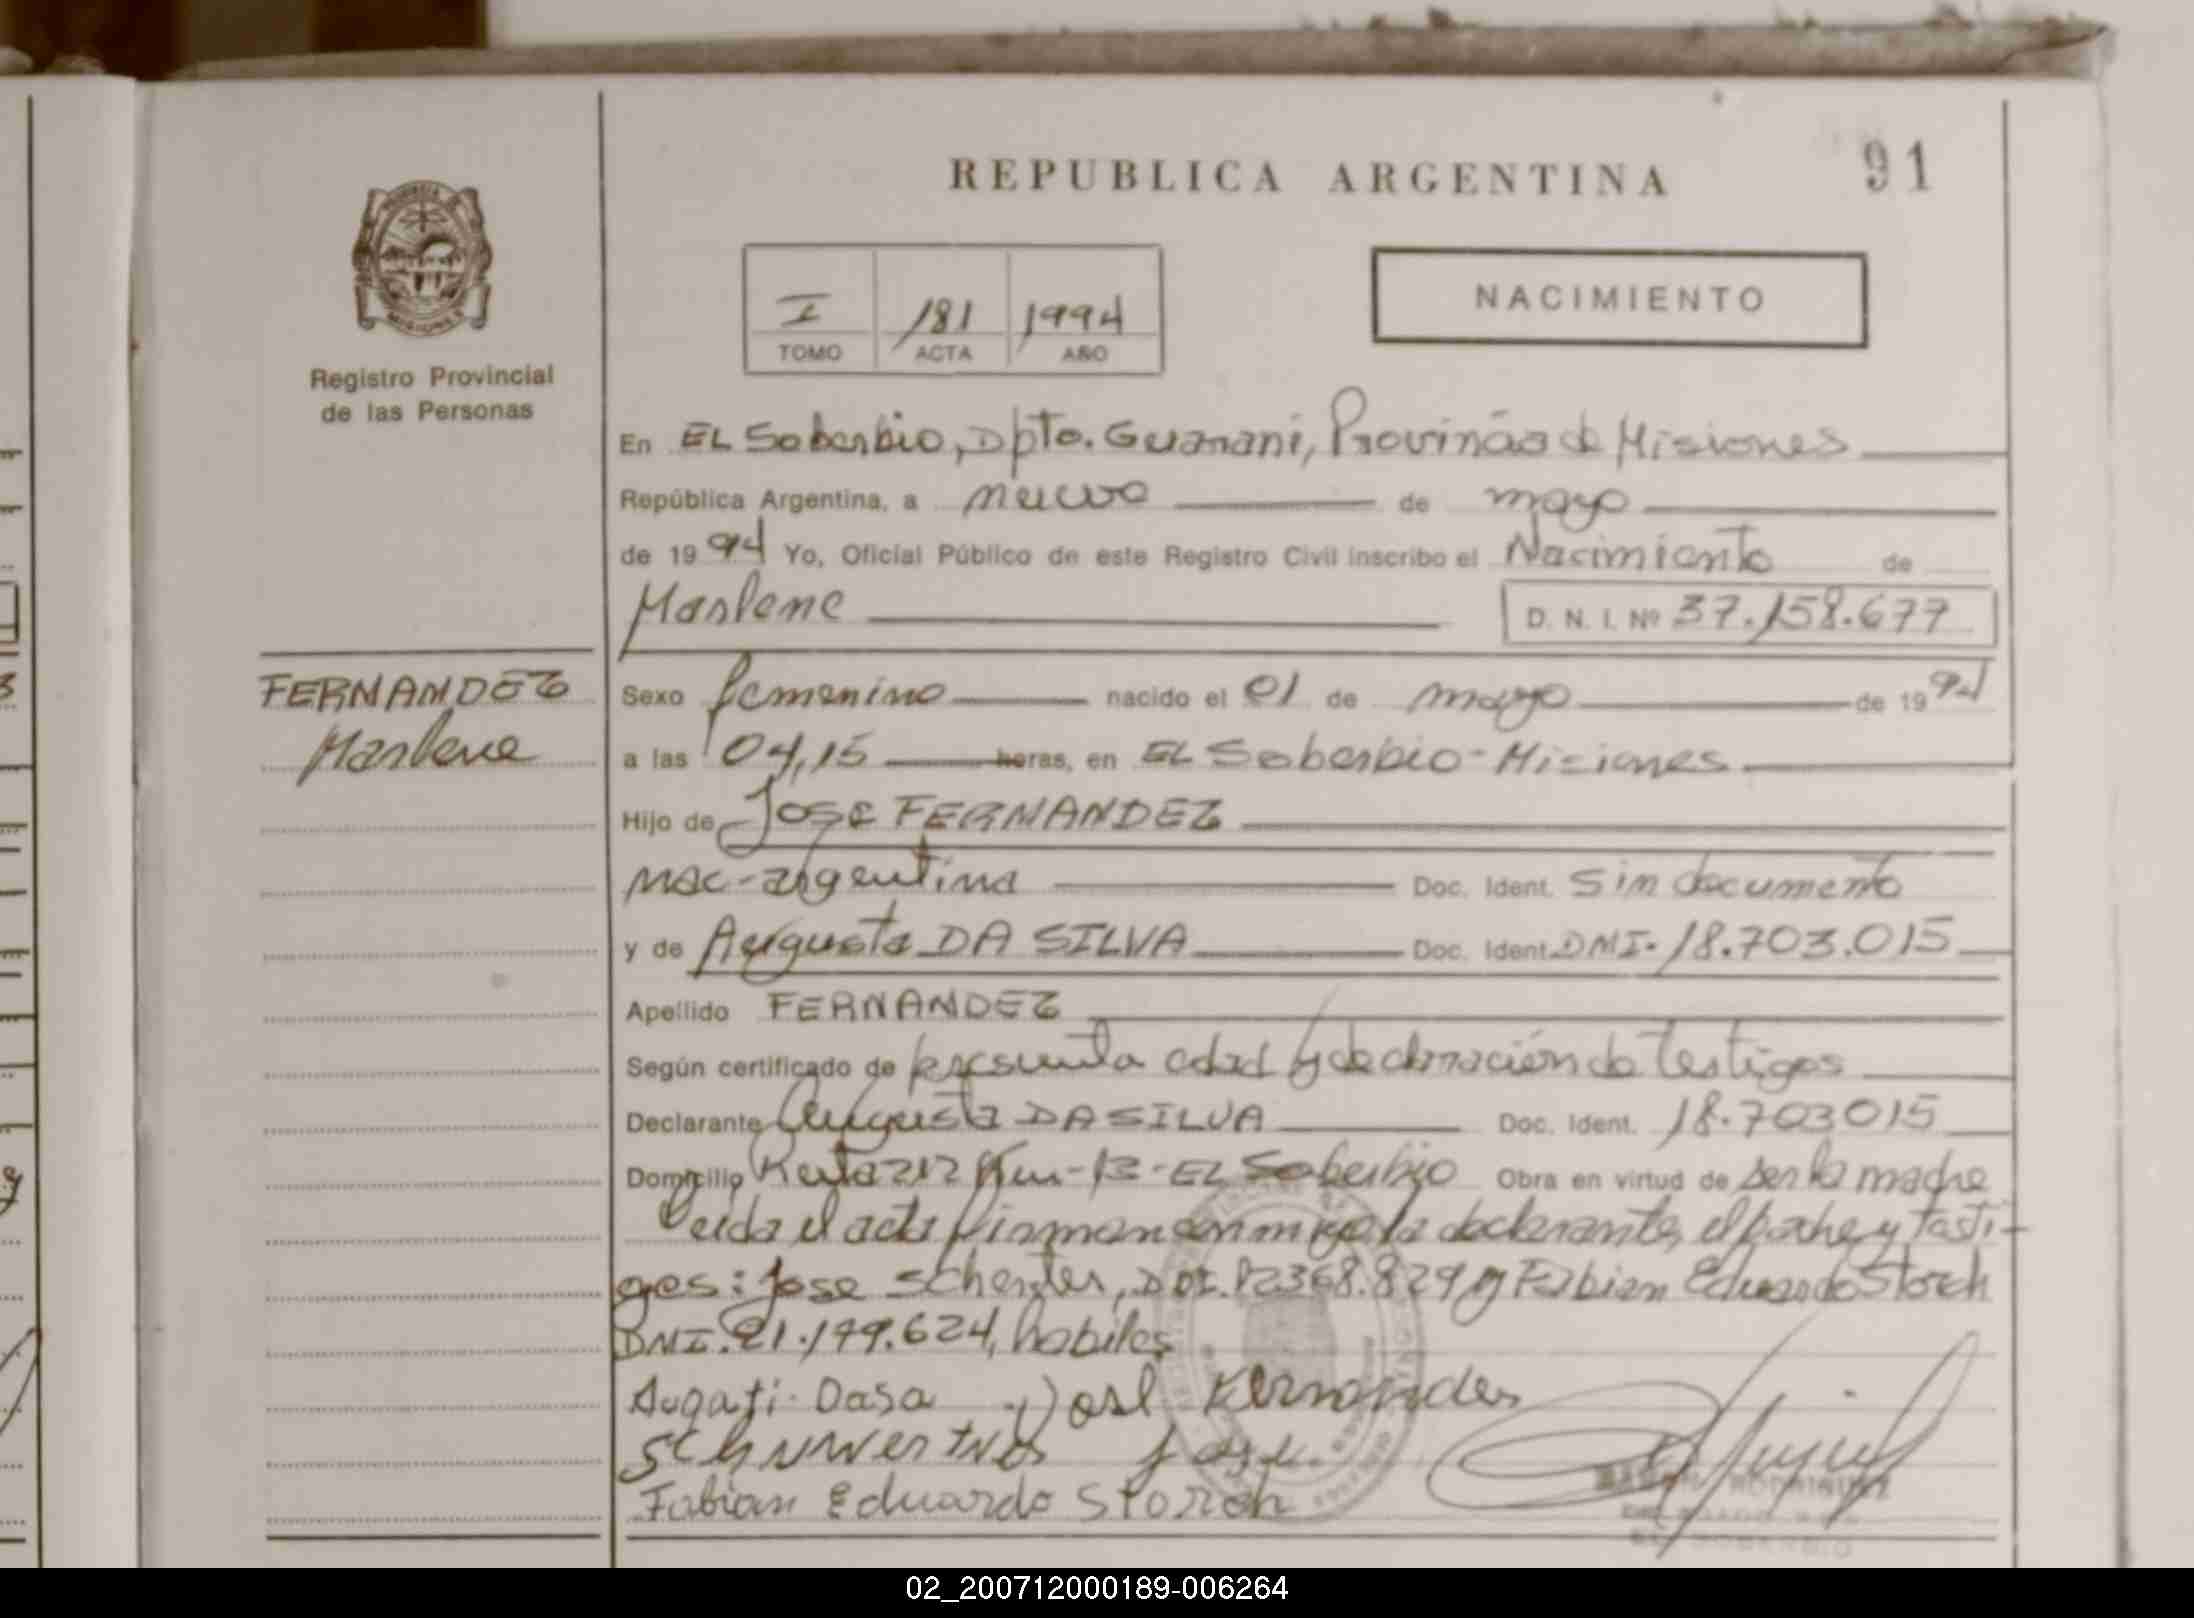 REPUBLICA ARGENTINA
91
I 181 1994
TOMO ACTA AÑO
NACIMIENTO
Registro Provincial
de las Personas
En EL Soberbio, Dpto. Guarani, Provincia de Misiones
República Argentina, a nueve de mayo
de 1994 Yo, Oficial Público de este Registro Civil inscribo el Nacimiento de
Marlene D. N. I. Nº 37.158.677
FERNANDEZ
Marlene
Sexo femenino nacido el 01 de mayo de 1994
a las 04,15 horas, en EL Soberbio - Misiones
Hijo de Jose FERNANDEZ
nac-argentina Doc. Ident. Sin documento
y de Augusta DA SILVA Doc. Ident. DNI. 18.703.015
Apellido FERNANDEZ
Según certificado de presunta edad y declaración de testigos
Declarante Augusta DA SILVA Doc. Ident. 18.703015
Domicilio Ruta 212 Km-13-EL Soberbio Obra en virtud de ser la madre
Leida el acta firman conmigo la declarante, el padre y testi-
gos: Jose y Fabian Eduardo Storch
DNI. 21.179.624, habiles
Dasa Jose Fernandes
Jose
Fabian Eduardo Storch
EL SOBERBIO
02_200712000189-006264